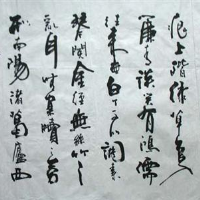 痕上階綠草色入
簾青談笑有鴻儒
往来無白丁可以調素
琴閱金經無絲竹之
亂耳無案牘之勞
形南陽諸葛廬西